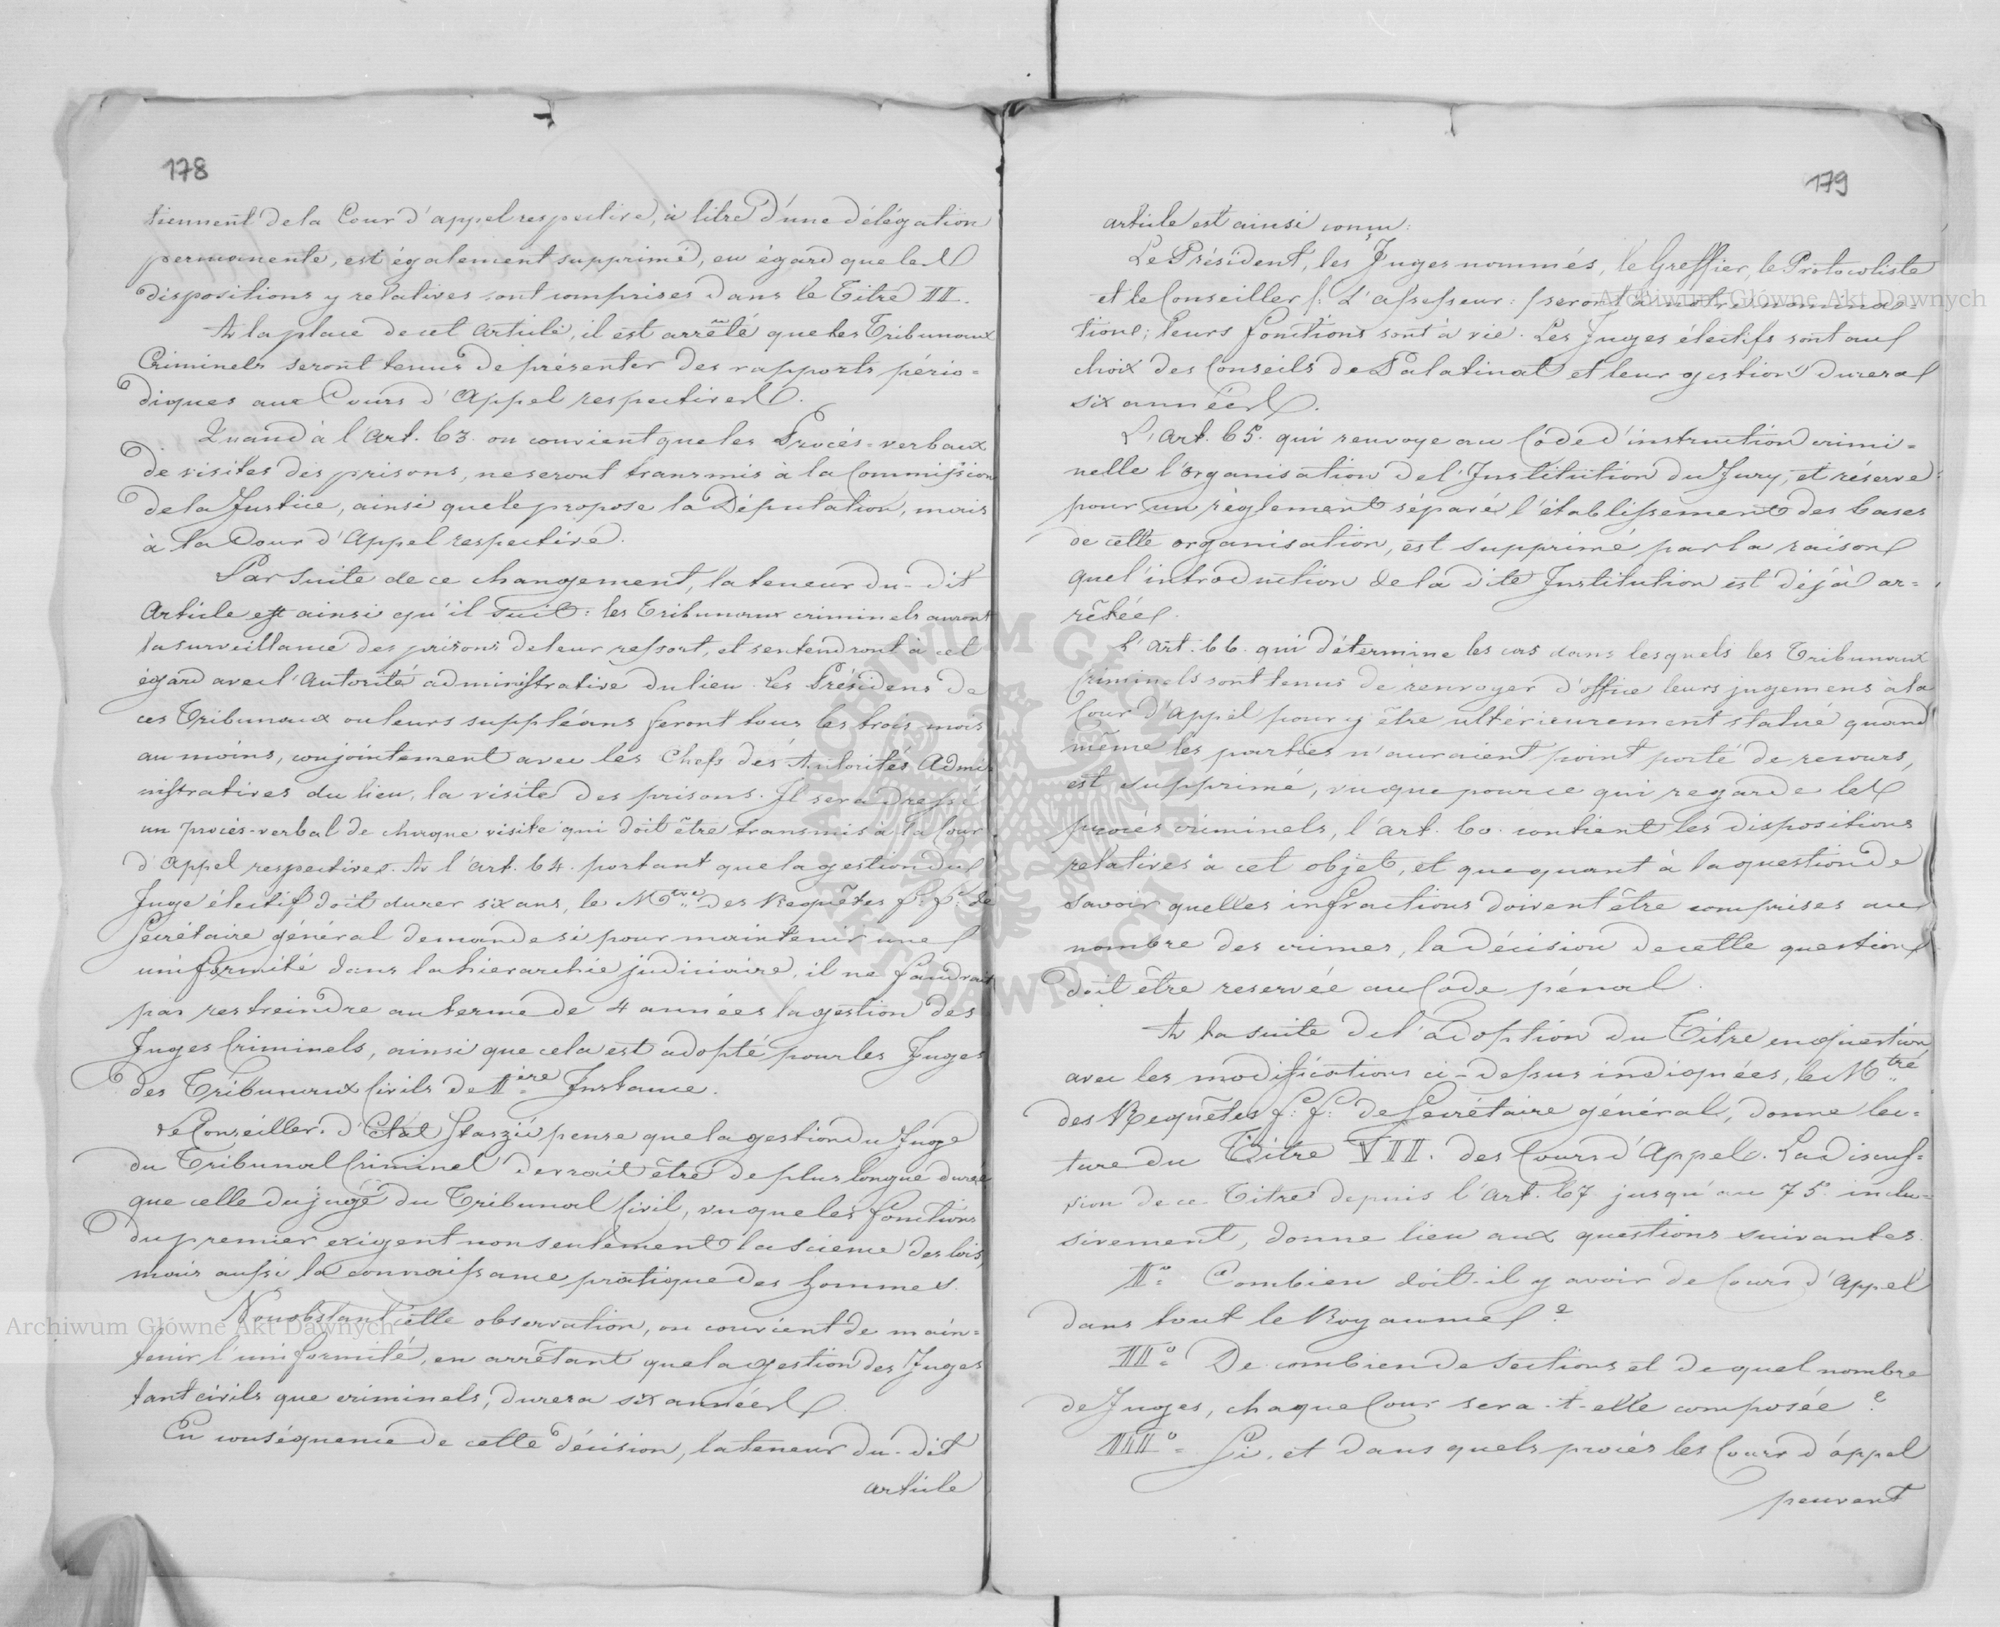 178
tiennent de la Cour d'appel respective, à titre d'une délégation
permanente, est également supprimé, eu égard que les
dispositions y relatives sont comprises dans le Titre II.
A la place de cet article, il est arrêté que les Tribunaux
Criminels seront tenus de présenter des rapports pério=
diques aux Cours d'Appel respectives.
Quand à l'Art. 63. on convient que les Procès-verbaux
de visites des prisons, ne seront transmis à la Commission
de la Justice, ainsi que le propose la Députation, mais
à la Cour d'Appel respective.
Par suite de ce changement, la teneur du-dit
Article est ainsi qu'il suit: les Tribunaux criminels auront
la surveillance des prisons de leur ressort, et s'entendront à cet
égard avec l'Autorité administrative du lieu. Les Présidens de
ces Tribunaux ou leurs suppléans feront tous les trois mois
au moins, conjointement avec les Chefs des Autorités Admi-
nistratives du lieu, la visite des prisons. Il sera dressé
un procès-verbal de chaque visite qui doit être transmis à la Cour
d'Appel respective. A l'art. 64. portant que la gestion du
Juge électif doit durer six ans, le Mtre des Requêtes f: f: de
Secrétaire général demande si pour maintenir une
uniformité dans la hierarchie judiciaire, il ne faudrait
pas restreindre au terme de 4 années la gestion des
Juges Criminels, ainsi que cela est adopté pour les Juges
des Tribunaux Civils de Ière Instance.
Le Conseiller d'Etat Staszic pense que la gestion du Juge
du Tribunal Criminel devrait être de plus longue durée
que celle du juge du Tribunal Civil, vu que les fonctions
du premier exigent non seulement la science des lois,
mais aussi la connaissance pratique des hommes.
Nonobstant cette observation, on convient de main=
tenir l'uniformité, en arrêtant que la gestion des Juges
tant civils que criminels, durera six années.
En conséquence de cette décision, la teneur du-dit
article
179
article est ainsi conçu:
Le Président, les Juges nommés, le Greffier, le Protocoliste
et le Conseiller /: L'assesseur :/ seront à notre nomina=
tion; leurs fonctions sont à vie. Les Juges électifs sont au
choix des Conseils de Palatinat et leur gestion durera
six années.
L'Art. 65. qui renvoye au Code d'instruction crimi=
nelle l'organisation de l'Institution du Jury, et réserve
pour un règlement séparé l'établissement des bases
de cette organisation, est supprimé par la raison
que l'introduction de la dite Institution est déjà ar=
rêtée.
L'Art. 66. qui détermine les cas dans lesquels les Tribunaux
Criminels sont tenus de renvoyer d'office leurs jugemens à la
Cour d'Appel pour y être ultérieurement statué quand
même les parties n'auraient point porté de recours,
est supprimé, vu que pour ce qui regarde les
procès criminels, l'art. 60. contient les dispositions
relatives à cet objet, et que quant à la question de
savoir quelles infractions doivent être comprises au
nombre des crimes, la décision de cette question
doit être reservée au Code pénal.
A la suite de l'adoption du Titre en question
avec les modifications ci-dessus indiquées, le Mtre
des Requêtes f: f: de Secrétaire général, donne lec=
ture du Titre VII. des Cours d'Appel. La discus=
sion de ce Titre depuis l'Art. 67 jusqu'au 75. inclu=
sivement, donne lieu aux questions suivantes.
I° Combien doit-il y avoir de Cours d'Appel
dans tout le Royaume?
II° De combien de Sections et de quel nombre
de Juges, chaque Cour sera-t-elle composée?
III° Si, et dans quels procès les Cours d'appel
peuvent
Archiwum Główne Akt Dawnych
Archiwum Główne Akt Dawnych
ARCHIWUM GŁÓWNE AKT DAWNYCH